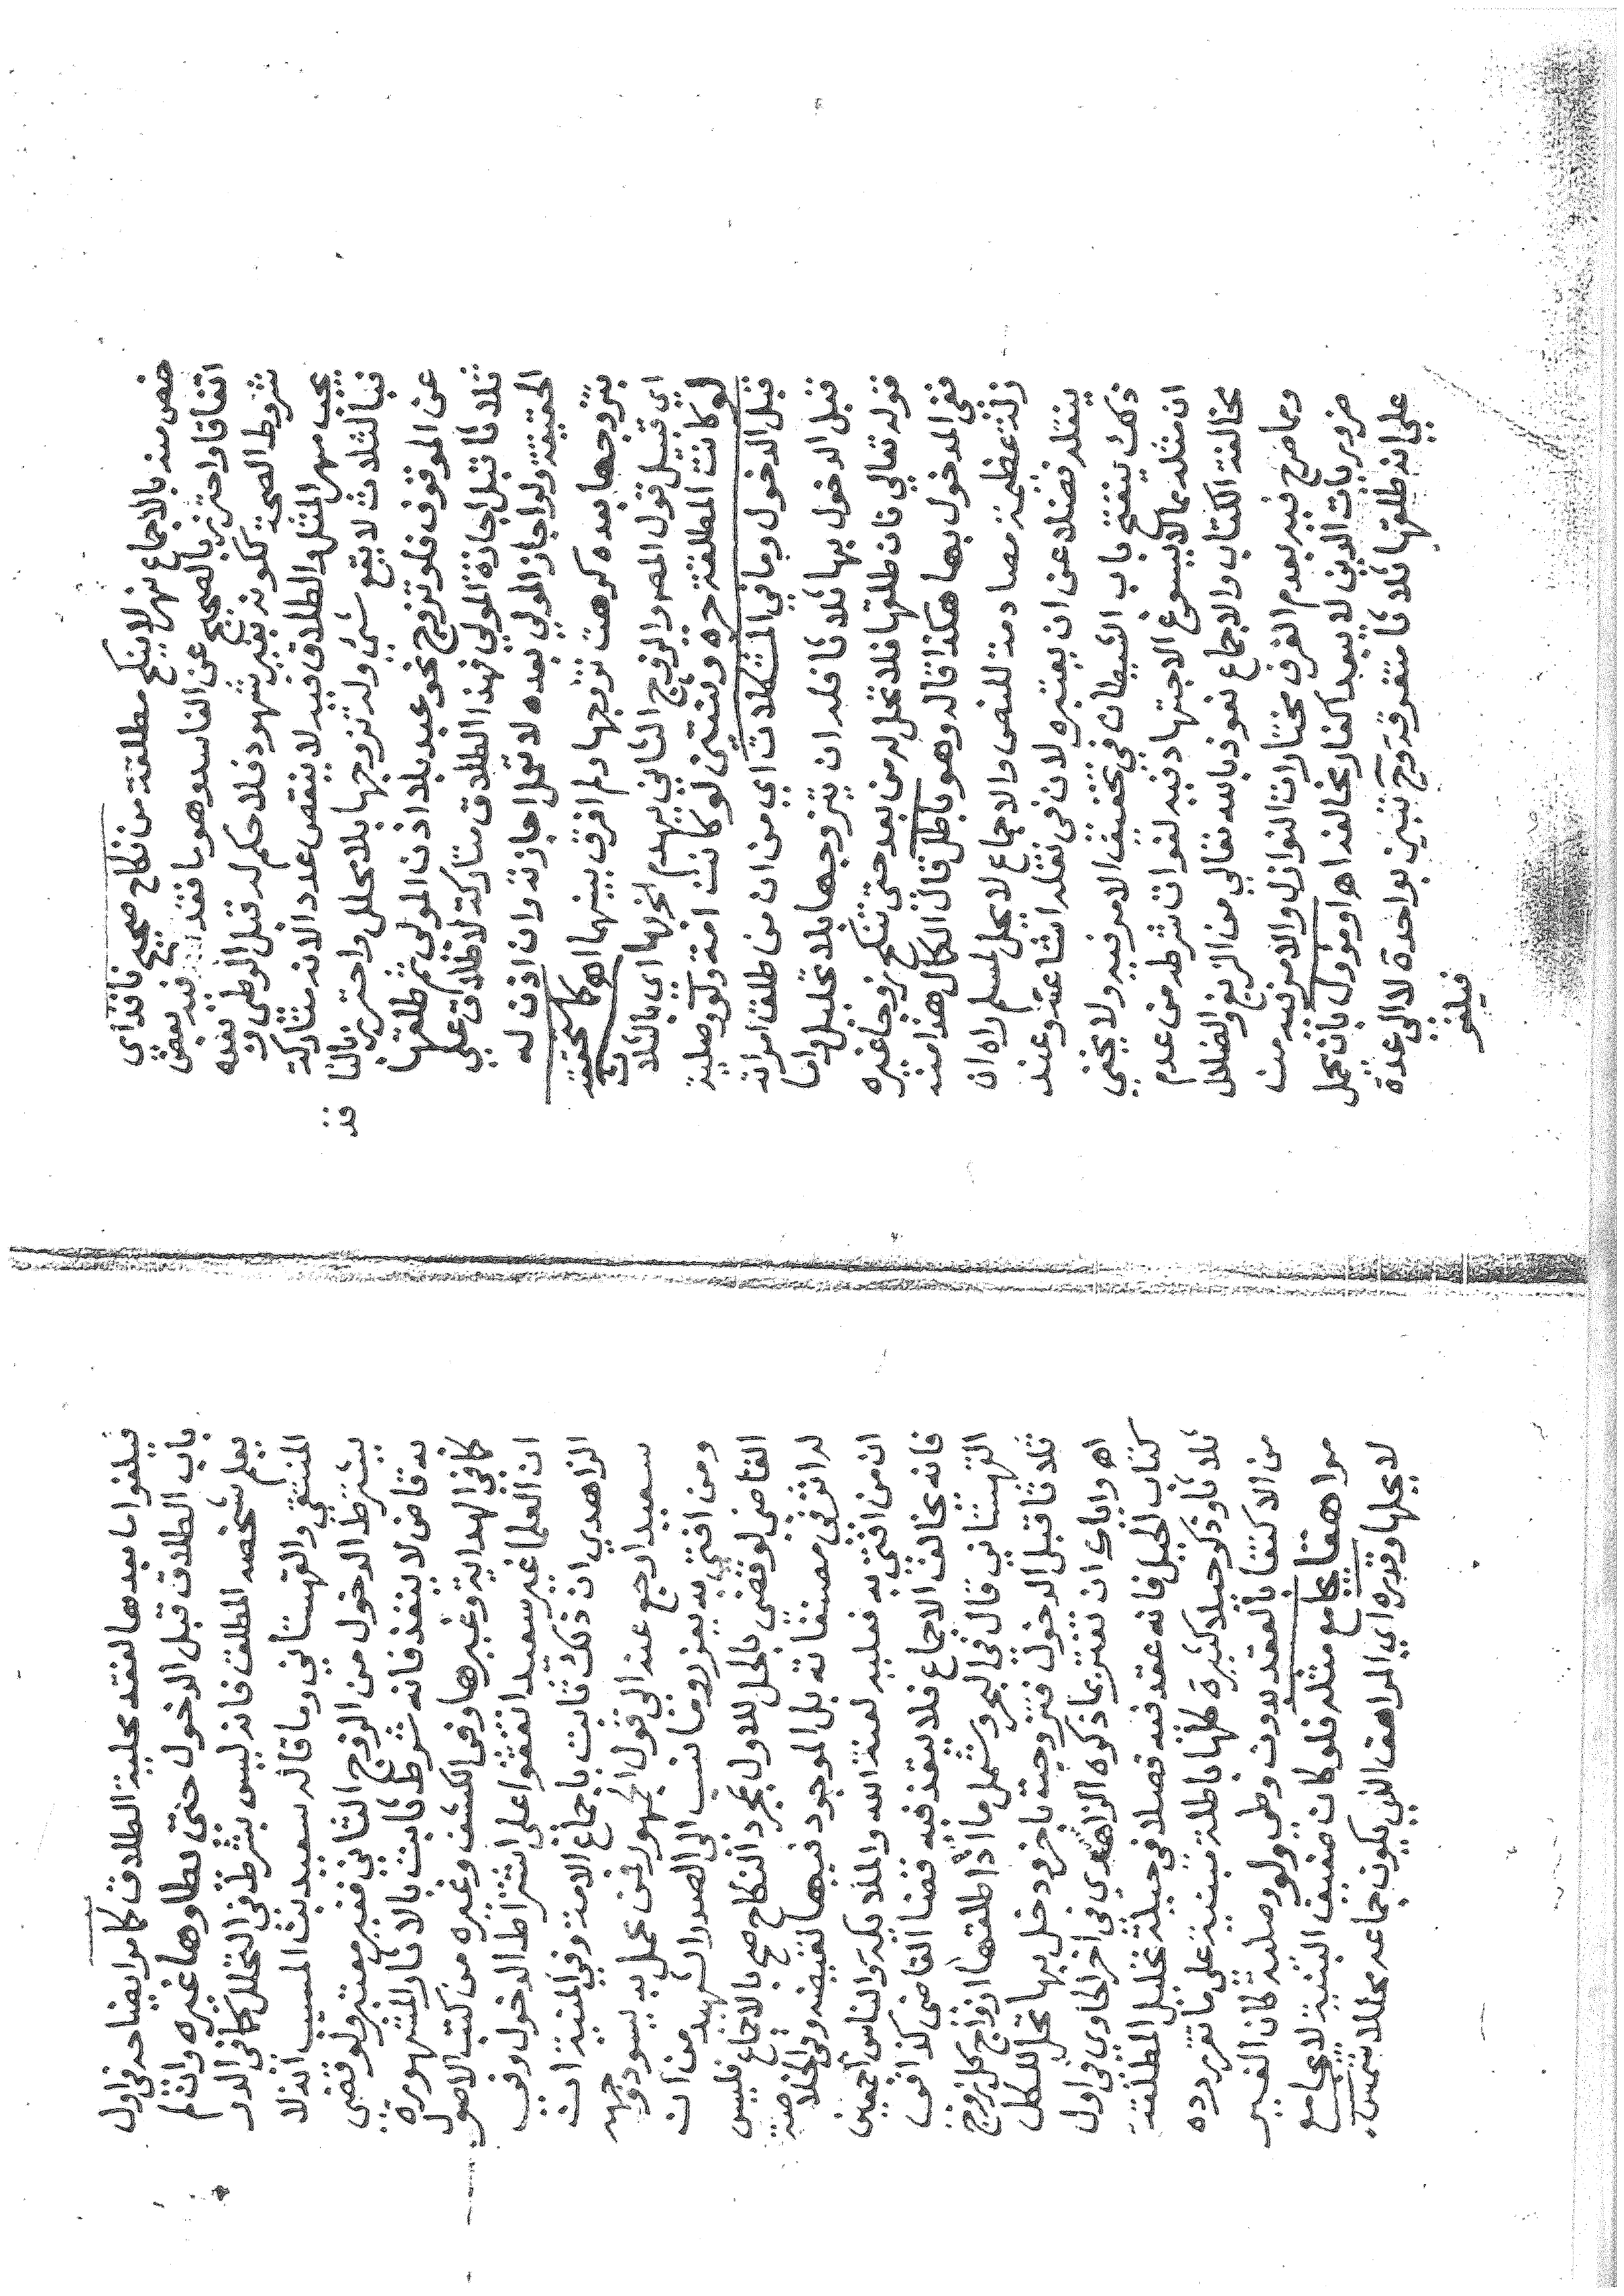 خص منه بالاجماع نهر لا ينكح مطلقة من نكاح صحيح نافذ اي
اتفاقا واحترز بالصحيح عن الفاسد وهو ما فقد فيه بعض
شروط الصحة ككونه بغير شهود فلا حكم له قبل الوطئ و بعده
يجب مهر المثل والطلاق فيه لا ينقص عدد الانه متاركة
فبالثلاث لا يقع شئ وله تزوجها بلا محلل واحترز بالنا
فذ
عن الموقوف فلو تزوج نحو عبد بلا اذن المولى ثم طلقها
ثلاثا قبل اجازة المولى فهذا الطلاق متاركة لا طلاق على
الحقيقة ولو اجاز المولى بعده لا تعمل اجازته وان اذن له
بتزوجها بعده كرهت تزوجها ولم افرق بينهما اهـ كما سنحققه
اي قبيل قول المص والزوج الثاني يهدم الخ بها اي بالثلاث
لو كانت المطلقة حره وبثنتين لو كانت امة ولو وصلية
قبل الدخول وما في المشكلات اي من ان من طلق امراته
قبل الدخول بها ثلاثا فله ان يتزوجها بلا تحليل واما
قوله تعالي فان طلقها فلا تحل له من بعد حتى تنكح زوجا غيره
ففي المدخول بها هكذا قاله وهو باطل قال الكمال هذا منه
زلة عظيمة مصادمة للنص والاجماع لا يحل لمسلم راه ان
ينقله فضلا عن ان يعتبره لان في نقله اشاعته وعند
ذلك ينفتح باب الشيطان في تخفيف الامر فيه ولا يخفى
ان مثله مما لا يسوغ الاجتهاد فيه لفوات شرطه من عدم
مخالفة الكتاب والاجماع نعوذ بالله تعالي من الزيغ والضلال
ومما صرح فيه بعدم الفرق مختارات النوازل والامر فيه من
ضروريات الدين لا يبعد اكفار مخالفه اهـ او مؤول بان يحمل
على انه طلقها ثلاثا متفرقة وح تبين بواحدة لا الى عدة
فيلغو
فيلغوا ما بعدها لفقد محلية الطلاق كما مر ايضاحه في اول
باب الطلاق قبل الدخول حتى يطاوها غيره وان لم
يعلم شخصه المطلق فانه ليس بشرط في التحلل كما في الدر
المنتقي والقهستاني وما قاله سعيد بن المسيب انه لا
يشترط الدخول من الزوج الثاني فغير معتبر ولو قضى
به قاض لا ينفذ فانه شرط ثابت بالاثار المشهورة
كما في الهداية وغيرها وفي الكشف وغيره من كتب الاصول
ان العلما غير سعيد اتفقوا على اشتراط الدخول وفي
الزاهدي ان ذلك ثابت باجماع الامة وفي المنية ان
سعيدا رجع عنه الى قول الجمهور فمن عمل به يسود وجهه
ومن افتى به يعزر وما نسب الى الصدر الشهيد من ان
القاضي لو قضى بالحل للاول بمجرد النكاح صح بالاجماع فليس
له اثر في مصنفاته بل الموجود فيها نقيضه وفي الخلاصة
ان من افتى به فعليه لعنة الله والملايكة والناس اجمعين
فانه مخالف الاجماع فلا ينفذ فيه قضا القاضي كذا في
القهستاني قال في البحر وشمل ما اذا طلقها ازواج كل زوج
ثلاثا قبل الدخول فتزوجت باخر ودخل بها تحل للكل
اهـ واياك ان تغتر بما ذكره الزاهدي في اخر الحاوي في اول
كتاب الحيل فانه عقد فيه فصلا في حيلة تحليل المطلقة
ثلاثا وذكر حيلا كثيرة كلها باطلة مبنية على ما تقرر رده
من الاكتفا بالعقد بدون وطي ولو وصلية كان الغير
مراهقا يجامع مثله فلو كان ضعيف البنية لا يجامع
لا يحلها وقدره اي المراهق الذي يكون جماعه محللا شمس